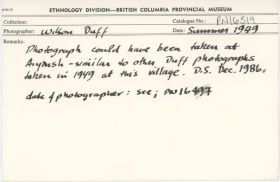 ETHNOLOGY DIVISION—BRITISH COLUMBIA PROVINCIAL MUSEUM
Collection: Catalogue No.: PN16519
Photographer: Wilson Duff Date: Summer 1949
Remarks:
Photograph could have been taken at
-similar to other Duff photographs
taken in 1949 at this village. D.S. Dec. 1986.
date & photographer: see; PN16497